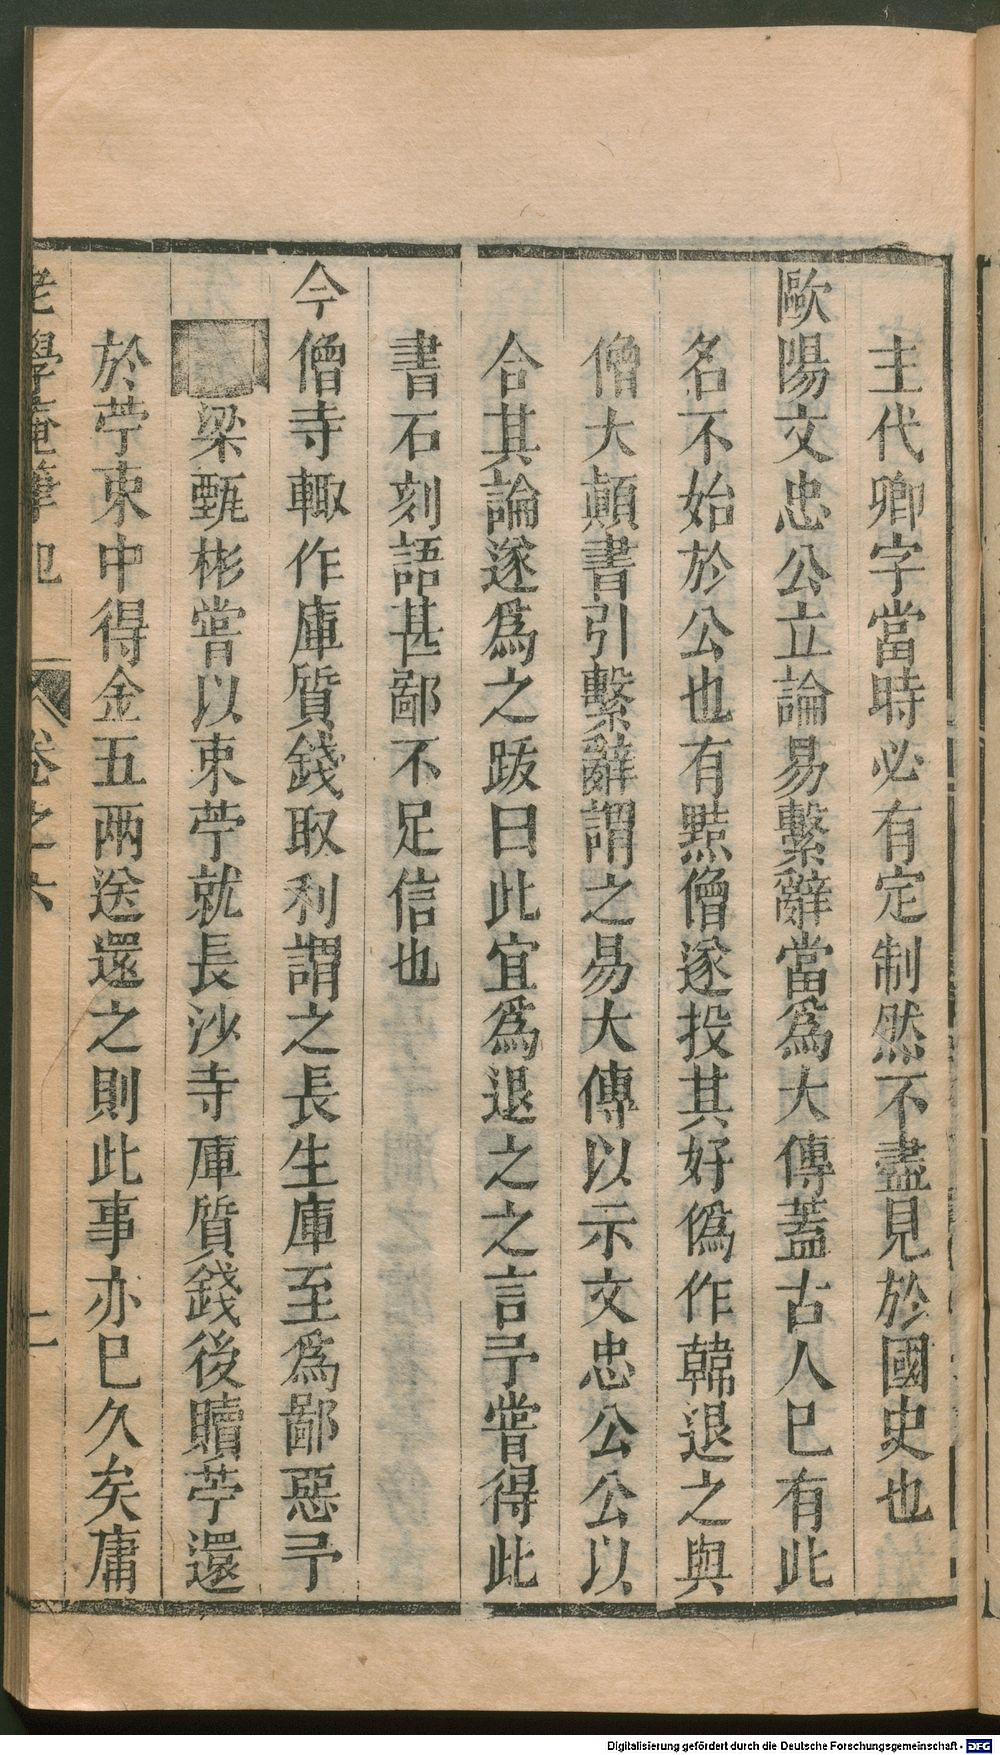 主代卿字當時必有定制然不盡見於國史也
歐陽文忠公立論易繫辭當爲大傳蓋古人巳有此
名不始於公也有黠僧遂投其好僞作韓退之與
僧大顛書引繫辭謂之易大傳以示文忠公公以
合其論遂爲之跋曰此宜爲退之之言予嘗得此
書石刻語甚鄙不足信也
今僧寺輙作庫質錢取利謂之長生庫至爲鄙惡予
梁甄彬嘗以束苧就長沙寺庫質錢後贖苧還
於苧束中得金五兩送還之則此事亦巳久矣庸
老學菴筆記 卷之六 二
Digitalisierung gefördert durch die Deutsche Forschungsgemeinschaft - DFG